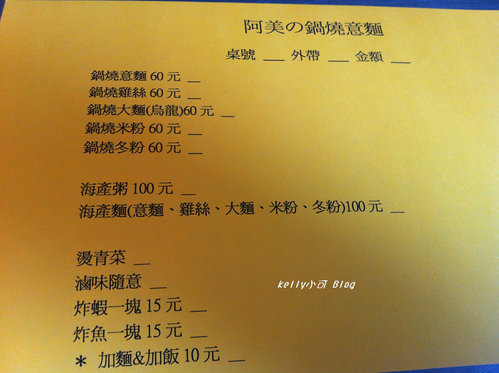 阿美の鍋燒意麵
桌號 __ 外帶 __ 金額 __
鍋燒意麵 60 元 __
鍋燒雞絲 60 元 __
鍋燒大麵(烏龍)60 元 __
鍋燒米粉 60 元 __
鍋燒冬粉 60 元 __
海產粥 100 元 __
海產麵(意麵、雞絲、大麵、米粉、冬粉)100 元 __
燙青菜 __
滷味隨意 __
炸蝦一塊 15 元 __
炸魚一塊 15 元 __
* 加麵&加飯 10 元 __
kelly小可 Blog